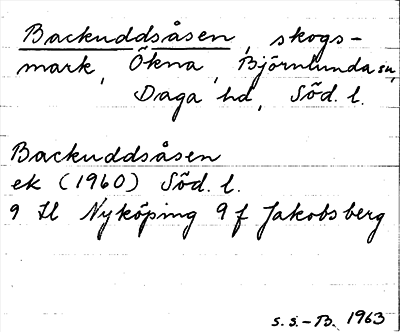 Backuddsåsen, skogs-
mark, Ökna, Björnlunda sn,
Daga hd, Söd. l.
Backuddsåsen
ek (1960) Söd. l.
9 H Nyköping 9 f Jakobsberg
s. s.-B. 1963